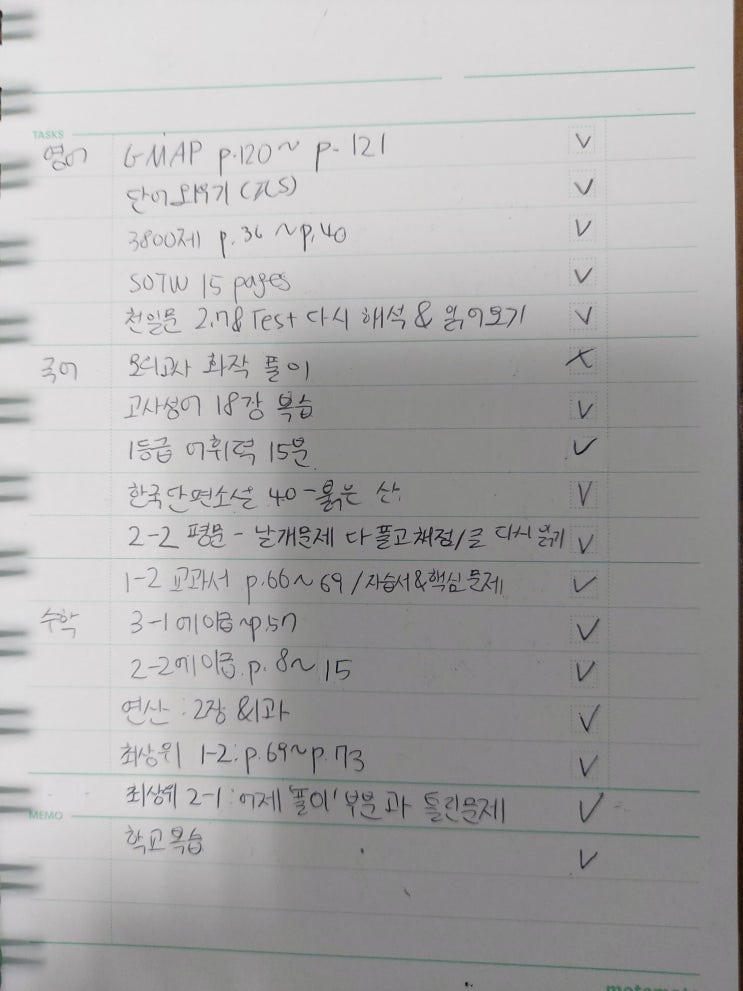 TASKS
영어 GMAP p.120~ p. 121 ✓
단어외우기 (ILS) ✓
3800제 p.36 ~p.40 ✓
SOTW 15 pages ✓
천일문 2.7&Test 다시 해석 & 읽어보기 ✓
국어 모의고사 화작 풀이 X
고사성어 18강 복습 ✓
1등급 어휘력 15분 ✓
한국단편소설 40-붉은 산. ✓
2-2 평문 - 날개문제 다 풀고 채점/글 다시 읽기 ✓
1-2 교과서 p.66~ 69 /자습서&핵심 문제 ✓
수학 3-1 에이급 ~p.57 ✓
2-2에이급.p. 8~ 15 ✓
연산 : 2장 &1과 ✓
최상위 1-2: p.69~p.73 ✓
최상위 2-1 : 어제 '풀이' 부분과 틀린문제 ✓
MEMO
학교복습 ✓